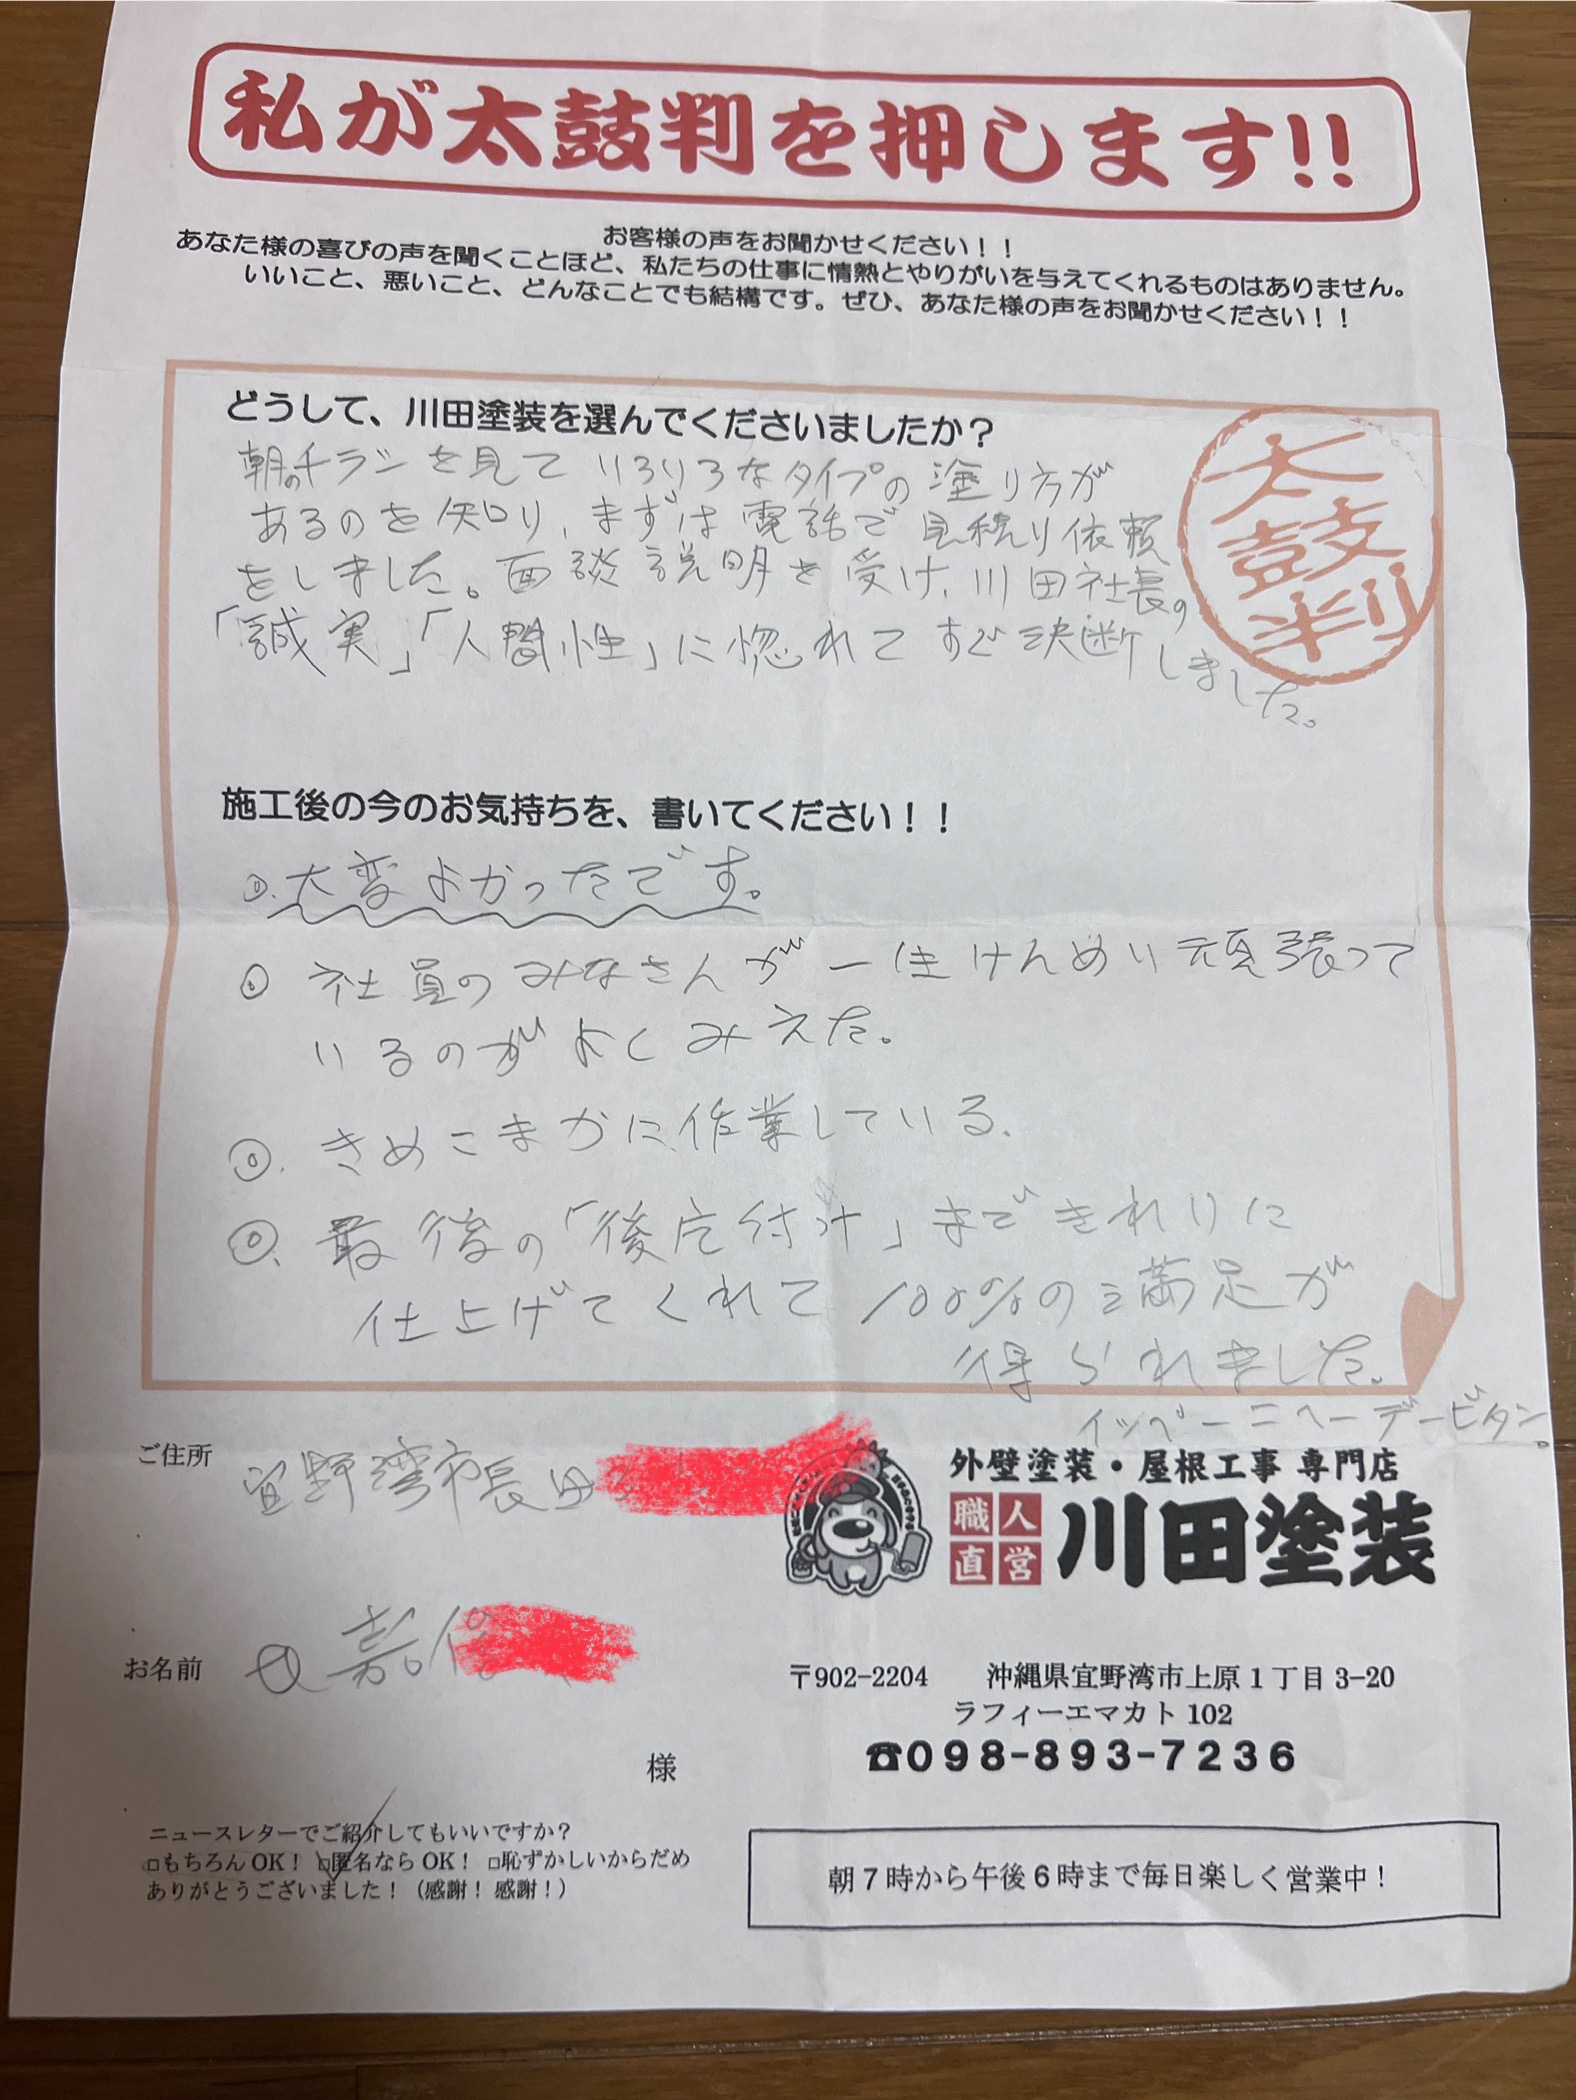 私が太鼓判を押します!!
お客様の声をお聞かせください！！
あなた様の喜びの声を聞くことほど、私たちの仕事に情熱とやりがいを与えてくれるものはありません。
いいこと、悪いこと、どんなことでも結構です。ぜひ、あなた様の声をお聞かせください！！
どうして、川田塗装を選んでくださいましたか？
朝のチラシを見ていろいろなタイプの塗り方が
あるのを知り、まずは電話で見積り依頼
をしました。面談説明を受け、川田社長の
「誠実」「人間性」に惚れてすぐ決断しました。
太鼓判
施工後の今のお気持ちを、書いてください！！
◎.大変よかったです。
◎ 社員のみなさんが一生けんめい頑張って
いるのがよくみえた。
◎. きめこまかに作業している.
◎. 最後の「後片付け」まできれいに
仕上げてくれて100%の満足が
得られました。
イッペーニヘーデービタン。
ご住所
宜野湾市長田
外壁塗装・屋根工事 専門店
職人直営
川田塗装
お名前
嘉
様
〒902-2204 沖縄県宜野湾市上原１丁目3-20
ラフィーエマカト102
☎098-893-7236
ニュースレターでご紹介してもいいですか？
□もちろんOK！ □匿名ならOK！ □恥ずかしいからだめ
ありがとうございました！（感謝！感謝！）
朝７時から午後６時まで毎日楽しく営業中！